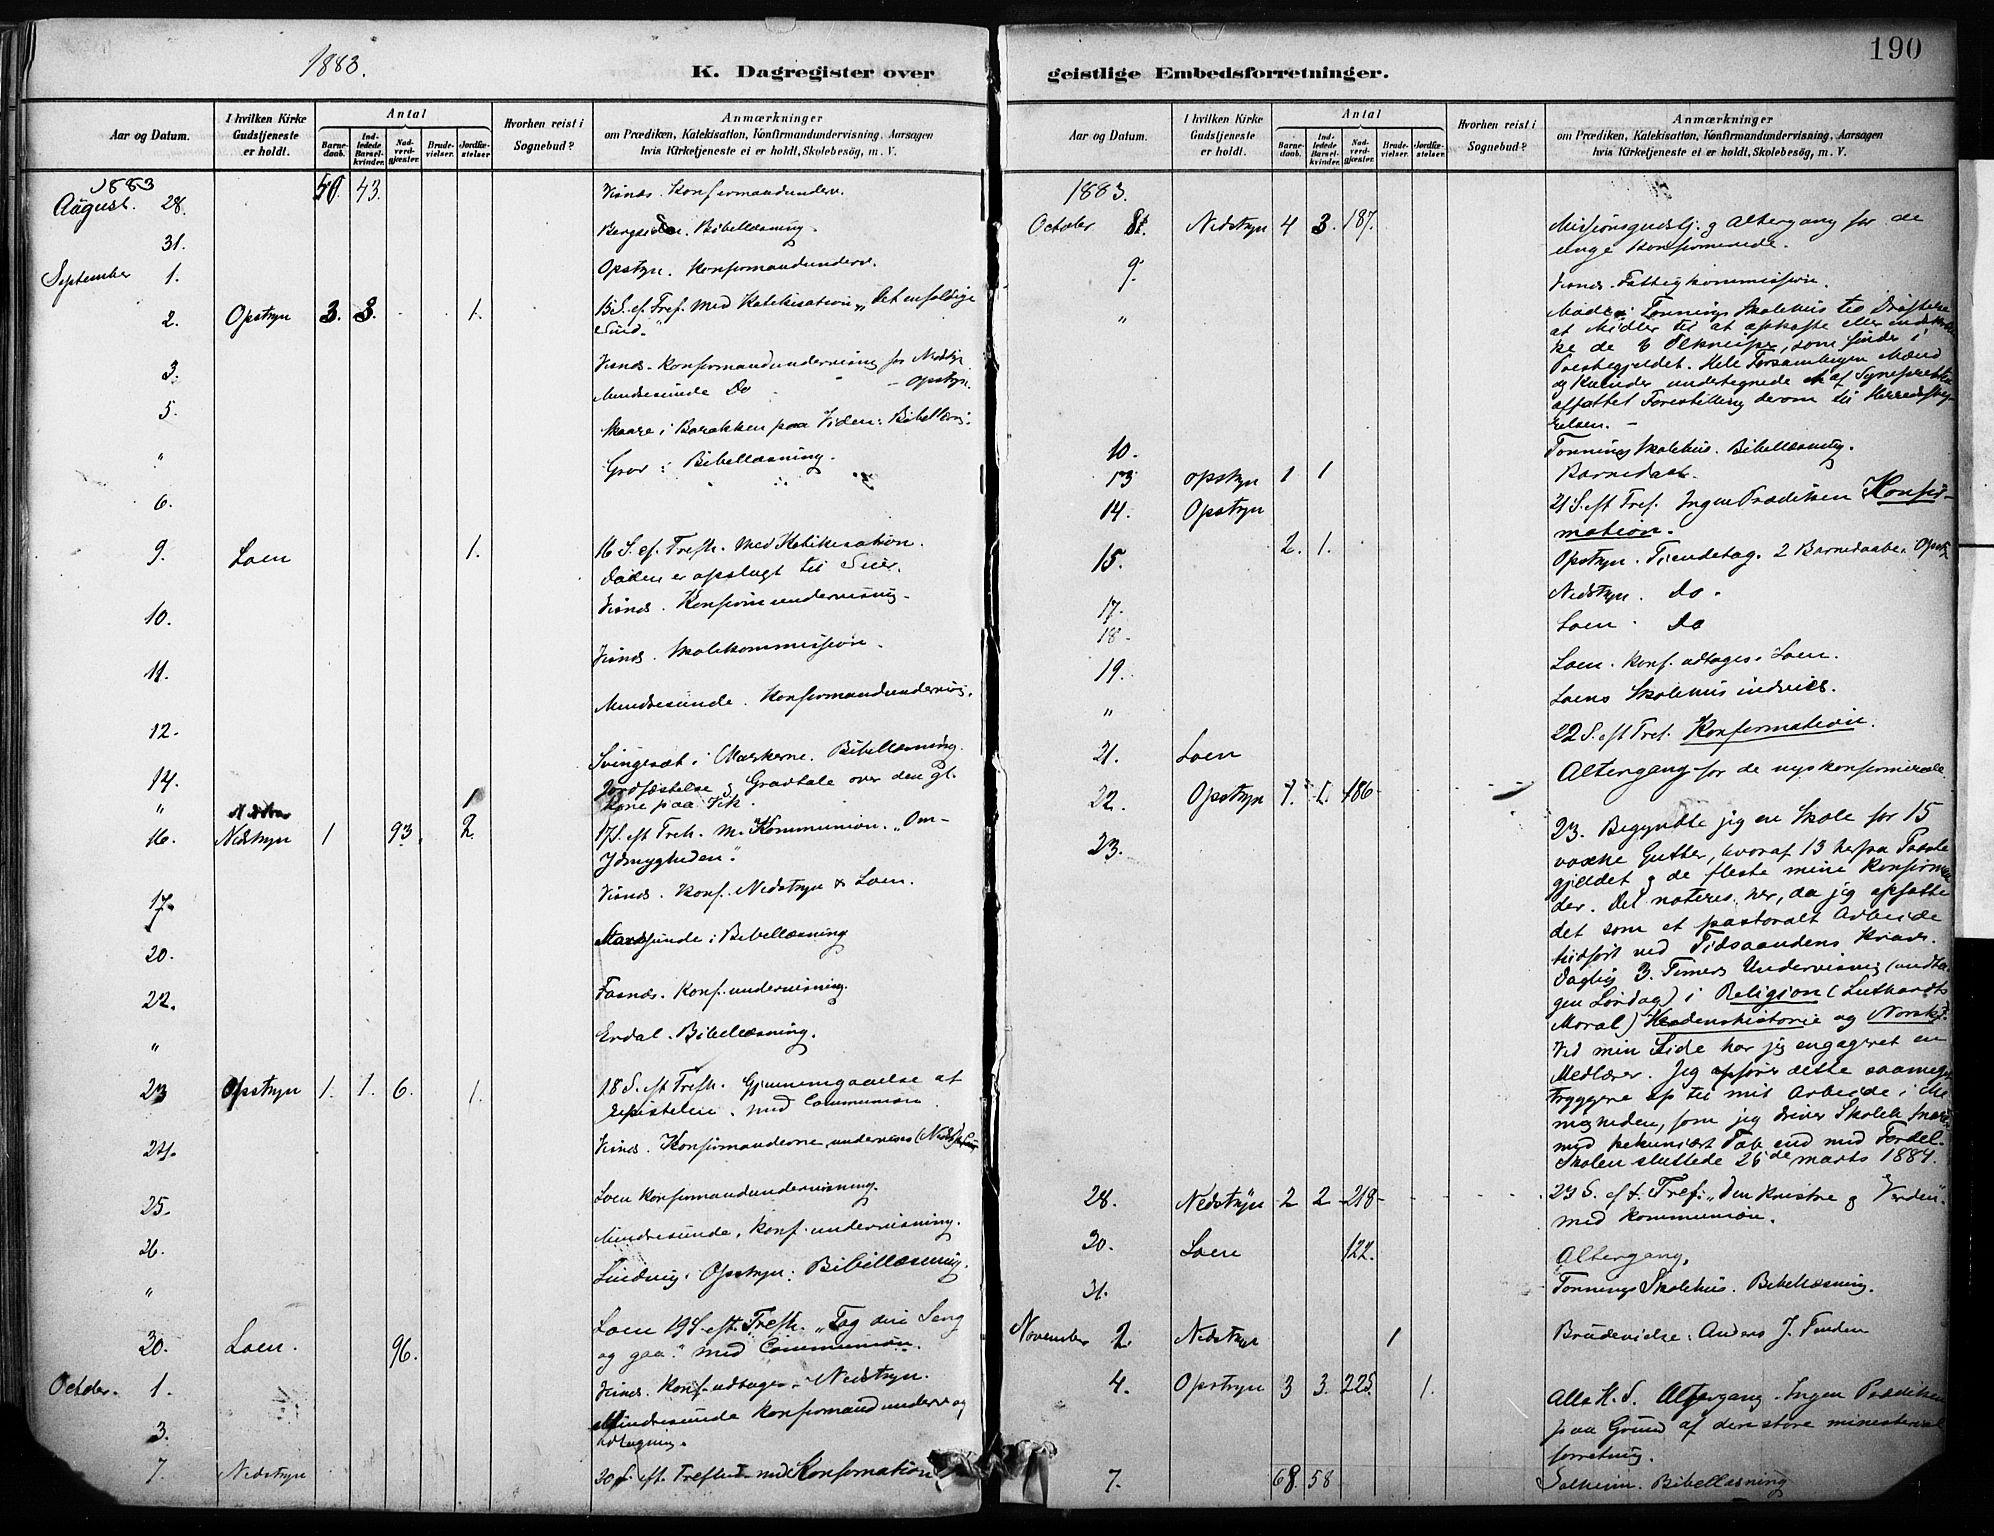 1883.
K. Dagregister over
Aar og Datum.
I hvilken Kirke Gudstjeneste er holdt.
Antal
Barnedaab.
Indledede Barselkvinder.
Nadverdgjæster.
Brudevielser.
Jordfæstelser.
Hvorhen reist i Sognebud?
Anmærkninger
om Prædiken, Katekisation, Konfirmandundervisning, Aarsagen
hvis Kirketjeneste ei er holdt, Skolebesøg, m. V.
1883
August. 28. 50 43. Visnæs. Konfirmandunderv.
31. Bibellæsning.
September 1. Opstryn. Konfirmandunderv.
2. Opstryn 3. 3. 1. 15 S. ef. Tref. Med Katekisation „Det enfoldige
3. Visnæs. Konfirmandundervisning for Nedstryn
Mindresunde Do - Opstryn.
5. Skaare i Barakken paa Viden: Bibellæsn.
" Grov: Bibellæsning.
6.
9. Loen 1. 16 S. ef. Trefh. Med Katekisation.
Døden er opslugt til Seier.
10. Visnæs. Konfirm undervisning.
11. Visnæs. Skolekommission.
12. Mindresunde. Konfirmandundervisn.
14. Svingesæt i Markerne. Bibellæsning.
" 1 Jordfæstelse og Gravtale over den gl.
Kone paa Vik.
16. Nedstryn 1 93. 2. 17 S. eft Treh. m. Kommunion. „Om
Ydmygheden".
17. Visnæs. Konf. Nedstryn & Loen.
20. Bibellæsning
22. Fasnæs. Konf. undervisning.
" Erdal. Bibellæsning.
23 Opstryn 1. 1. 6. 1. 18 S. eft Trefh. Gjennemgaaelse af
Epistelen. med Communion
24. Visnæs. Konfirmanderne undervises
25. Loen Konfirmandundervisning.
26. Mindresunde, Konf. undervisning.
" Lindvig i Opstryn: Bibellæsning.
30. Loen. 96. Loen 19 S. eft. Trefh. „Tag din Seng
og gaa." med Communion.
October. 1. Visnæs. Konf. udtages. Nedstryn.
3. Mindresunde Konfirmandunderv og
udtagning.
7. Nedstryn 20 S. eft. Trefh. med Konfirmation
geistlige Embedsforretninger.
190
Aar og Datum.
I hvilken Kirke Gudstjeneste er holdt.
Antal
Barnedaab.
Indledede Barselkvinder.
Nadverdgjæster.
Brudevielser.
Jordfæstelser.
Hvorhen reist i Sognebud?
Anmærkninger
om Prædiken, Katekisation, Konfirmandundervisning, Aarsagen
hvis Kirketjeneste ei er holdt, Skolebesøg, m. V.
1883.
October 8. Nedstryn 4 3. 187. Missionsgudstj. og Altergang for de
unge Konfirmerede.
9. Visnæs. Fattigkommission.
" Møde i Tonnings Skolehus til Drøftelse
af Midler til at afskaffe eller
ke de 6 Ølkneiper, som findes i
Præstegjeldet. Hele Forsamlingen Mænd
og Kvinder undertegnede en af Sogneprest
affattet Forestilling derom til Herredsbesty-
relsen.
10. Tonnings Skolehus. Bibellæsning.
13 Opstryn 1 1 Barnedaab.
14. Opstryn 21 S. eft Tref. Ingen Prædiken Konfir-
mation.
15. 2. 1. Opstryn. Tiendetag. 2 Barnedaabe. Opst.
17. Nedstryn. Do.
18. Loen. Do
19. Loen. Konf. udtages. Loen.
" Loens Skolehus indvies.
21. Loen 22 S. eft Tref. Konfirmation.
22. Opstryn 1. 1. 186 Altergang for de nyskonfirmerede.
23. 23. Begyndte jeg en Skole for 15
voxne Gutter, hvoraf 13 herfra Præste
gjeldet og de fleste mine Konfirman
der. Det noteres her, da jeg opfatte
det som et pastoralt Arbeide
hidført ved Tidsaandens Krav.
Daglig 3 Timers Undervisning (undta-
gen Lørdag) i Religion (Luthardts
Moral) Verdenshistorie og Norsk.
Ved min Side har jeg engageret en
Medlærer. Jeg opfører dette saameget
tryggere op til mit Arbeide i Me-
nigheden, som jeg driver Skolen snarere
med pekuniært Tab end med Fordel.
Skolen sluttede 26de marts 1884.
28. Nedstryn 2 2 218 23 S. eft. Tref. „Den kristne og Verden"
med Kommunion.
30. Loen 122. Altergang.
31. Tonnings Skolehus. Bibellæsning.
November 2. Nedstryn 1 Brudevielse: Anders J.
4. Opstryn 3 3. 225. 1. Alle H. S. Altergang. Ingen Prædiken
paa Grund af den store ministerial
forretning.
7. 68. 58 Solheim. Bibellæsning